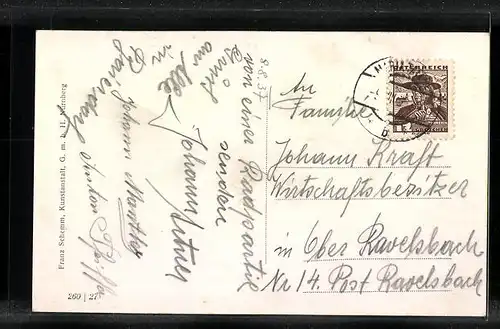 8.8.37
von einer Radpartie
senden
Gruß
an Alle
in
Johann
Johann
Anton
An
Familie
Johann Kraft
Wirtschaftsbesitzer
in Ober Ravelsbach
Nr 14. Post Ravelsbach
ÖSTERREICH
Franz Schemm, Kunstanstalt, G. m. b. H. Nürnberg
260 | 27